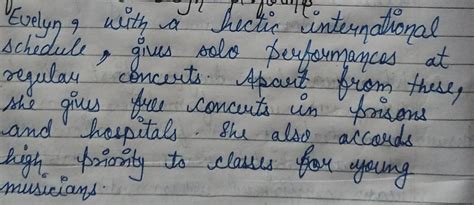 Evelyn, with a hectic international
schedule, gives solo performances at
regular concerts. Apart from these,
she gives free concerts in prisons
and hospitals. She also accords
high priority to classes for young
musicians.